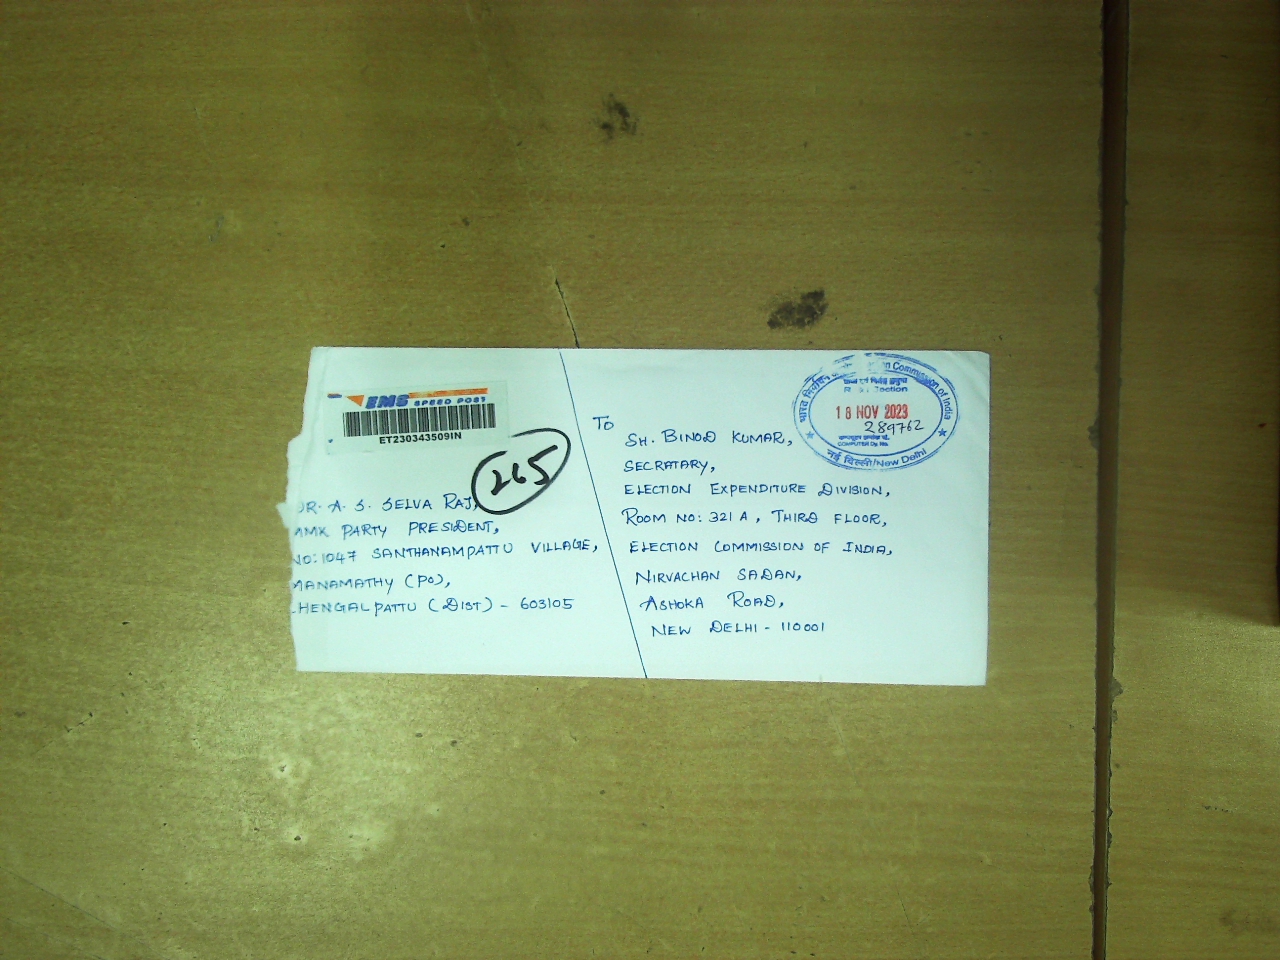 EMS SPEED POST
ET230343509IN
265
DR. A. S. SELVA RAJ,
MMK PARTY PRESIDENT,
NO: 1047 SANTHANAMPATTU VILLAGE,
MANAMATHY (PO),
CHENGALPATTU (DIST) - 603105
TO
SH. BINOD KUMAR,
SECRATARY,
ELECTION EXPENDITURE DIVISION,
ROOM NO: 321 A, THIRD FLOOR,
ELECTION COMMISSION OF INDIA,
NIRVACHAN SADAN,
ASHOKA ROAD,
NEW DELHI - 110001
भारत निर्वाचन Commission of India
Section
18 NOV 2023
289762
COMPUTER Dy. No.
नई दिल्ली/New Delhi